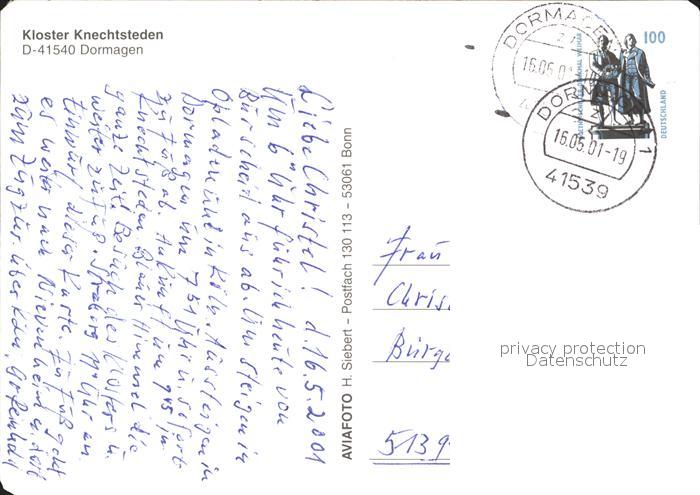 Kloster Knechtsteden
D-41540 Dormagen
DORMAGEN
16.05.01
DORMAGEN
16.05.01-19
41539
100
DEUTSCHLAND
Liebe Christel! d. 16.5.2001
Um 6 Uhr fuhr ich heute von
Burscheid aus ab. Umsteigen in
Opladen und in Köln. Aussteigen in
Dormagen um 7 51 Uhr u. sofort
zu Fuß ab. Ankunft um 9 45 in
Knechtsteden. Blauer Himmel die
ganze Zeit. Besuch des Klosters u.
weiter zu Fuß. Uhr an.
Einwurf dieser Karte. Zu Fuß geht
es weiter nach Nievenheim u. dort
zum Zug zur über Köln.
AVIAFOTO H. Siebert – Postfach 130 113 – 53061 Bonn
Frau
Chris
Bürge
5139
privacy protection
Datenschutz